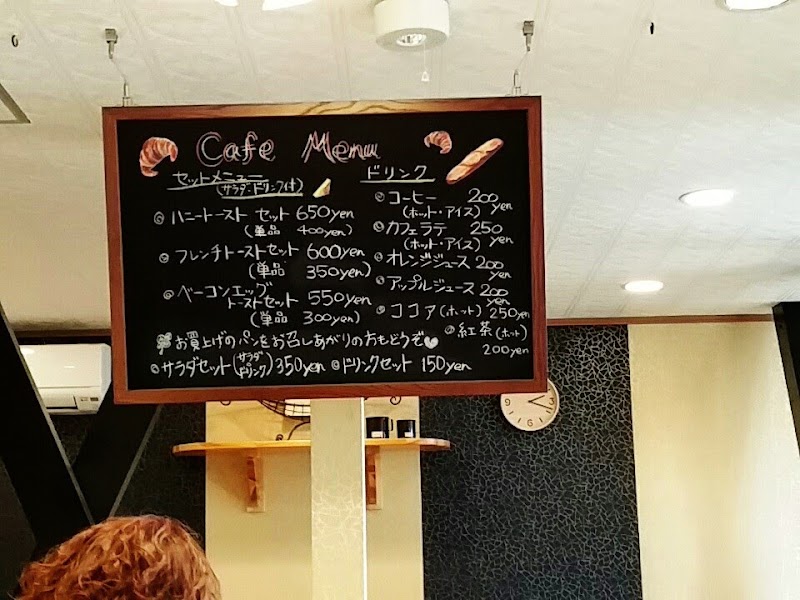 Cafe Menu
セットメニュー
(サラダ・ドリンク付)
◎ ハニートースト セット 650yen
(単品 400yen)
◎ フレンチトーストセット 600yen
(単品 350yen)
◎ ベーコンエッグ
トーストセット 550yen
(単品 300yen)
ドリンク
◎ コーヒー 200yen
(ホット・アイス)
◎ カフェラテ 250yen
(ホット・アイス)
◎ オレンジジュース 200yen
◎ アップルジュース 200yen
◎ ココア(ホット) 250yen
◎ 紅茶(ホット)
200yen
お買上げのパンをお召しあがりのおともどうぞ
◎ サラダセット(サラダ ドリンク)350yen ◎ ドリンクセット 150yen